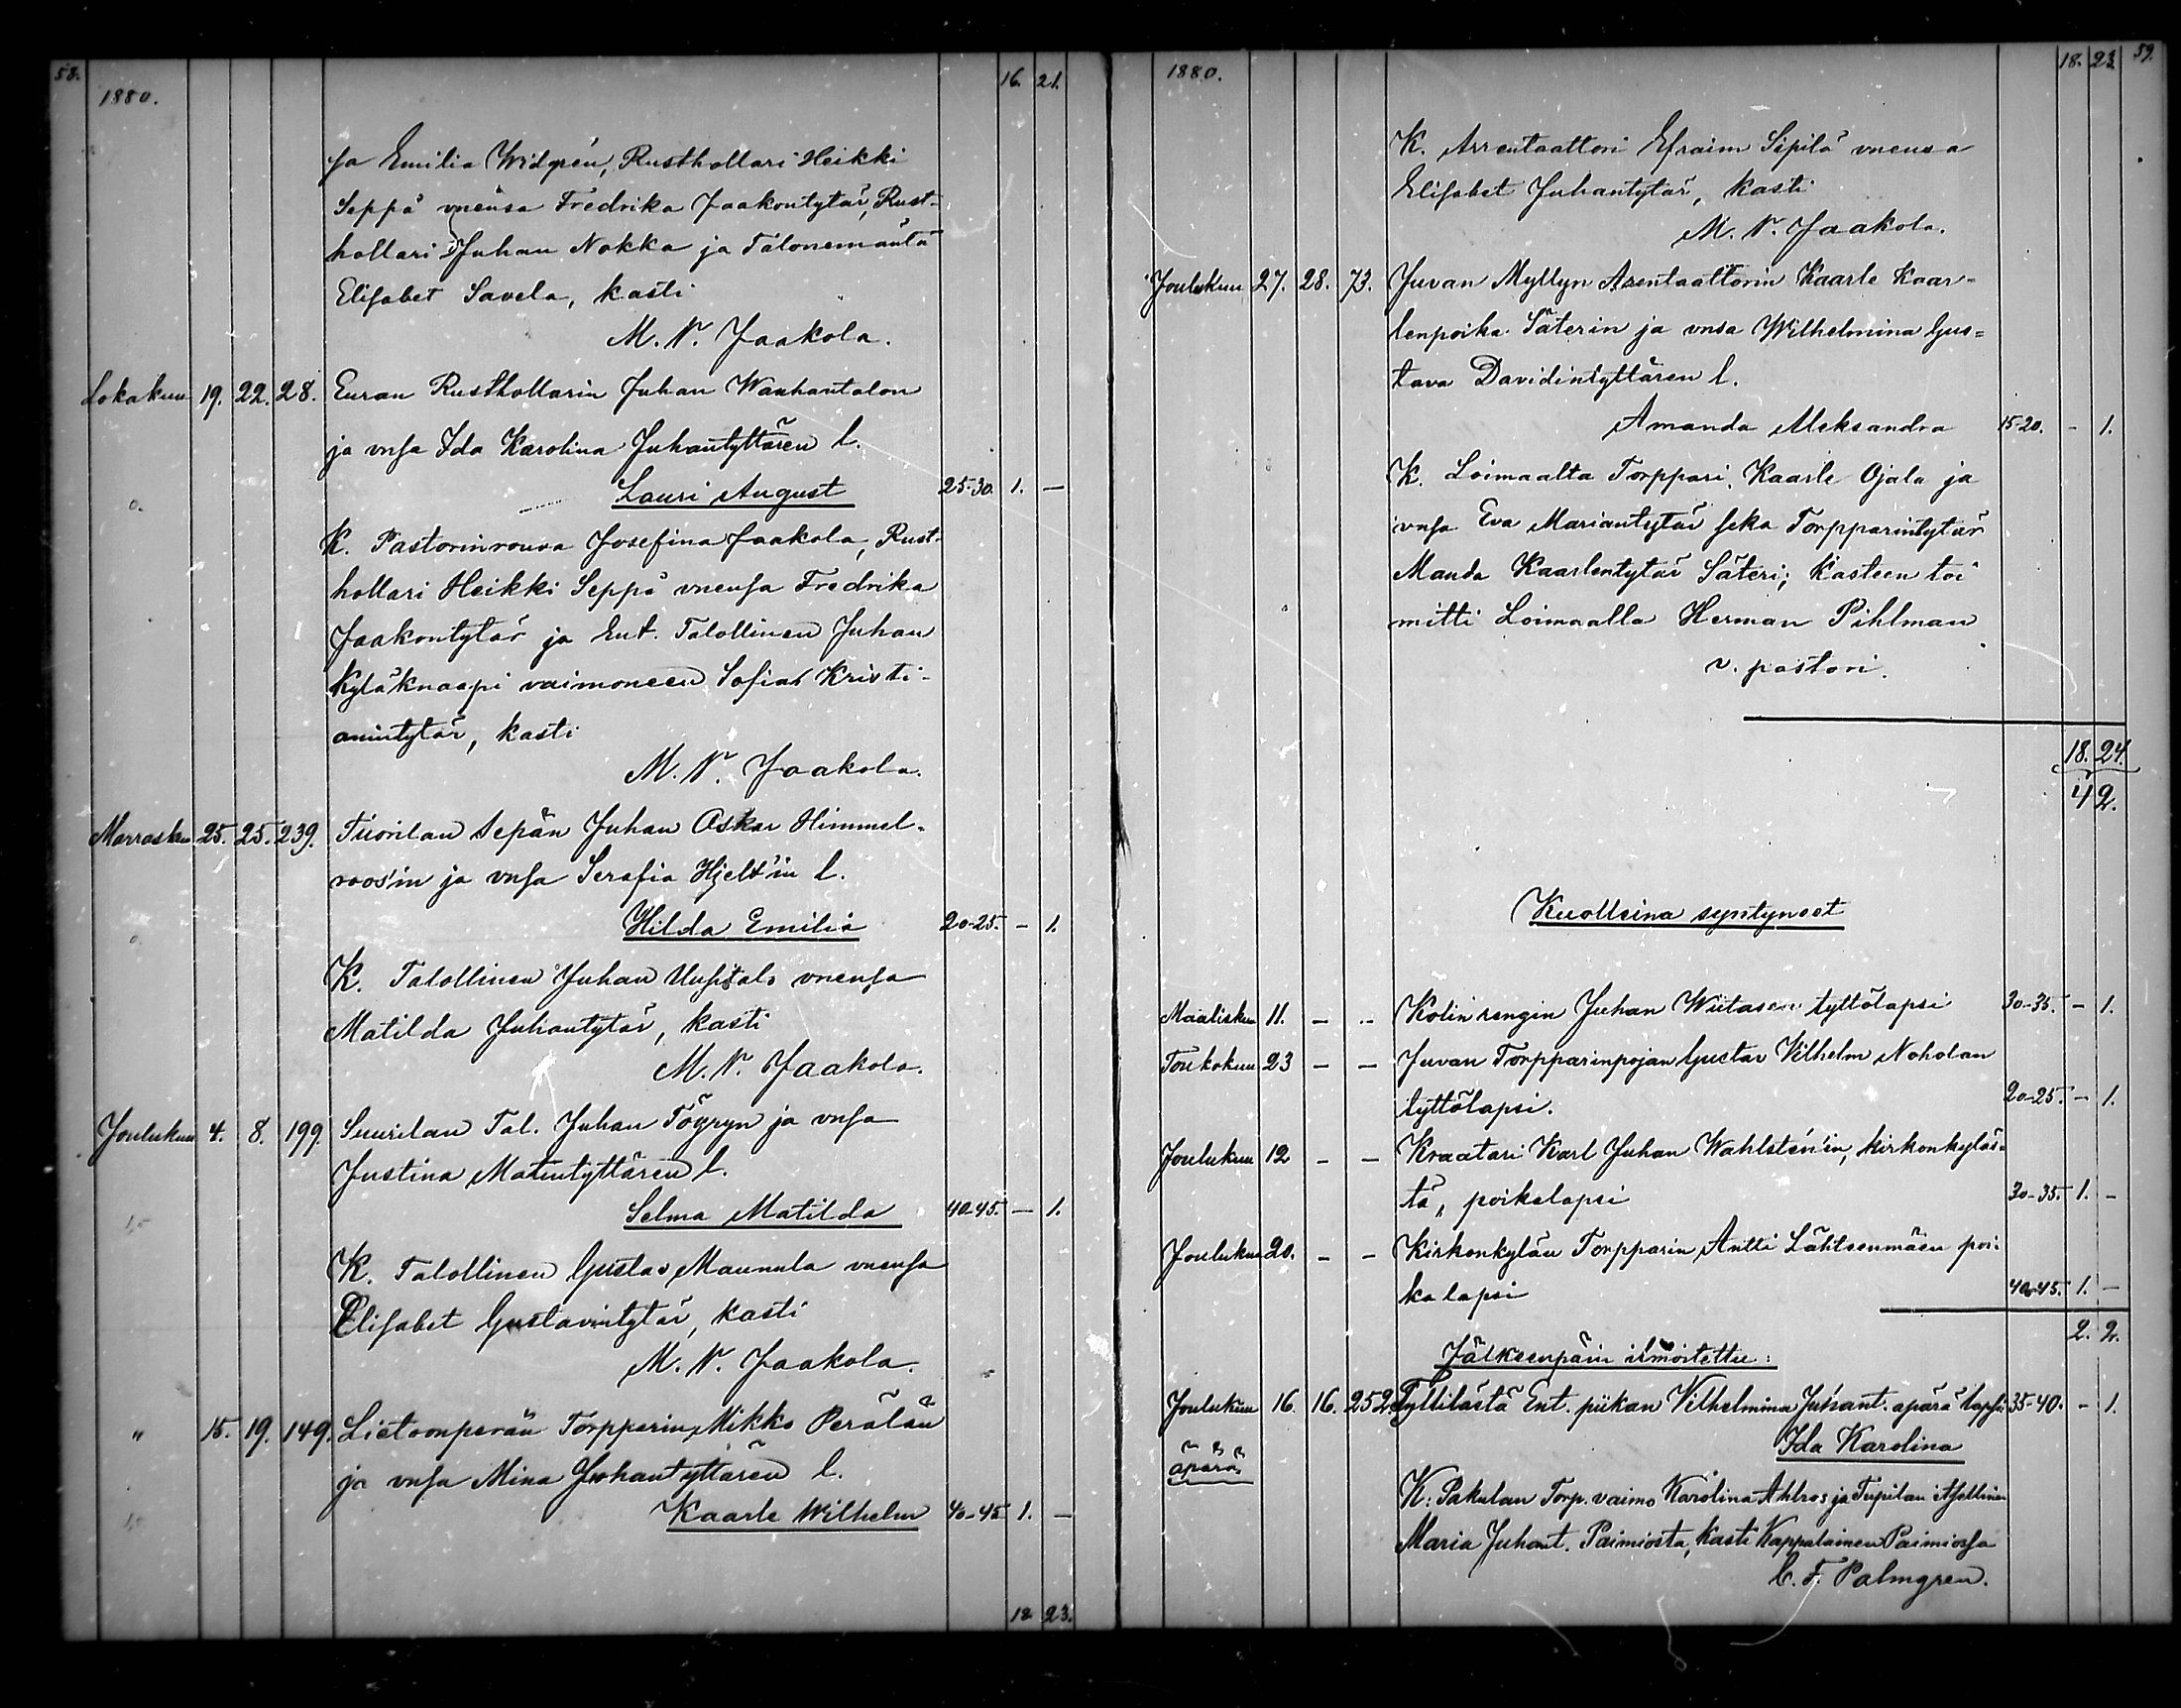 58.
1880.
16. 21.
ja Emilia Widgrén, Rusthollari Heikki
Seppä vneusa Fredrika Jaakontytär, Rust-
hollari Juhan Nokka ja Talonemäntä
Elisabet Savela, kasti
M. N. Jaakola.
Lokakuu 19. 22. 28. Euran Rusthollarin Juhan Wanhantalon
ja vnsa Ida Karolina Juhantyttären l.
Lauri August 25-30. 1. —
K. Pastorinrouva Josefina Jaakola, Rust-
hollari Heikki Seppä vneusa Fredrika
Jaakontytär ja Ent. Talollinen Juhan
Kyläknaapi vaimoneen Sofia Kristi-
anintytär, kasti
M. N. Jaakola.
Marrasku 25. 25. 239. Tuorilan sepän Juhan Oskar Himmel-
roos'in ja vnsa Serafia Hjelt'in l.
Hilda Emilia 20-25. - 1.
K. Talollinen Juhan Uusitalo vneusa
Matilda Juhantytär, kasti
M. N. Jaakola.
Joulukuu 4. 8. 199. Suurilan Tal. Juhan Töyryn ja vnsa
Justina Matintyttären l.
Selma Matilda 40-45. — 1.
K. Talollinen Gustav Maunula vneusa
Elisabet Gustavintytär, kasti
M. N. Jaakola.
" 15. 19. 149. Lietoonperän Torpparin Mikko Perälän
ja vnsa Mina Juhantyttären l.
Kaarle Wilhelm 40-45 1. —
18. 23.
1880.
18. 23. 59.
K. Arrentaattori Efraim Sipilä vneusa
Elisabet Juhantytär, kasti
M. N. Jaakola.
Joulukuu 27. 28. 73. Juvan Myllyn Arentaattorin Kaarle Kaar-
lenpoika Säterin ja vnsa Wilhelmina Gus-
tava Davidintyttären l.
Amanda Aleksandra 15-20. - 1.
K. Loimaalta Torppari Kaarle Ojala ja
vnsa Eva Mariantytär seka Torpparintytär
Manda Kaarlentytär Säteri; Kasteen toi
mitti Loimaalla Herman Pihlman
v. pastori.
18. 24.
42.
Kuolleina syntyneet
Maalisku 11. — - Kolin rengin Juhan Wiitasen tyttölapsi 30-35. - 1.
Toukokuu 23 — — Juvan Torpparinpojan Gustav Vilhelm Noholan
tyttölapsi. 20-25. - 1.
Joulukuu 12 - — Kraatari Karl Juhan Wahlstén'in, kirkonkyläs-
tä, poikalapsi 30-35. 1. -
Joulukuu 20. - - Kirkonkylän Torpparin Antti Lähteenmäen poi-
kalapsi 40-45. 1. -
2. 2.
Jälkeenpäin ilmoitettu:
Joulukuu 16. 16. 252. Tyllilästä Ent. piikan Vilhelmina Juhant. äpärä lapsi 35-40. - 1.
äpärä Ida Karolina
K: Pakulan Torp. vaimo Karolina Ahlros ja Tupilan itsellinen
Maria Juhant. Paimiosta, Kasti Kappalainen Paimiossa
C. F. Palmgren.